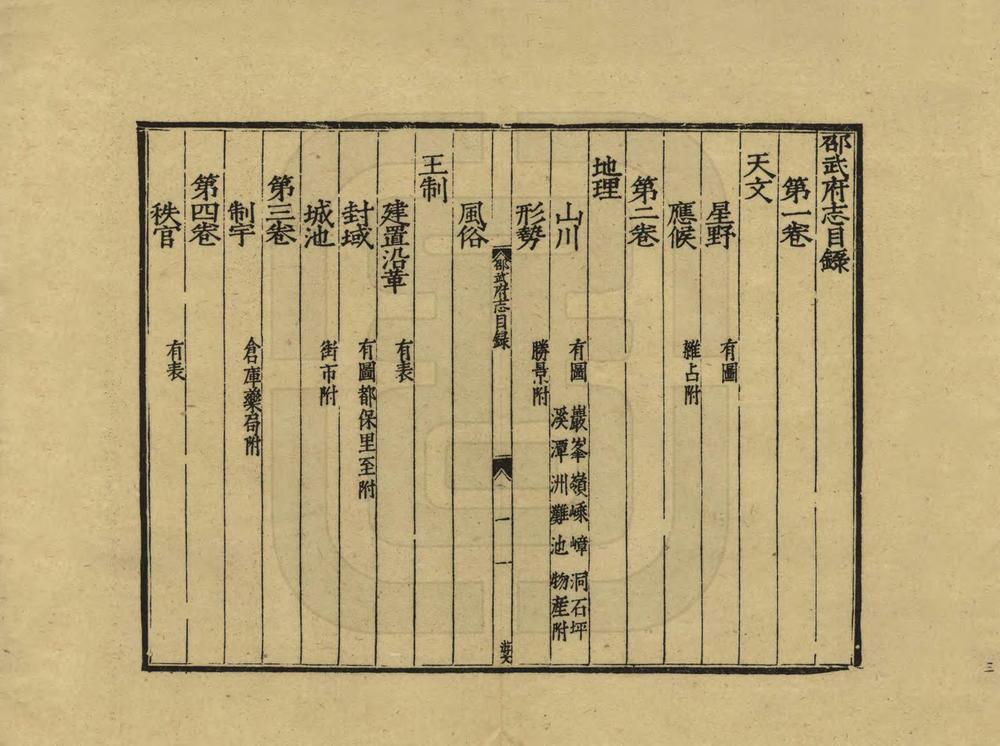 邵武府志目錄
第一卷
天文
星野 有圖
應候 雜占附
第二卷
地理
山川 有圖 巖峯嶺嵊嶂洞石坪
溪潭洲灘池物產附
形勢 勝景附
邵武府志目錄 一 一
風俗
王制
建置沿革 有表
封域 有圖都保里至附
城池 街市附
第三卷
制宇 倉庫藥局附
第四卷
秩官 有表
三